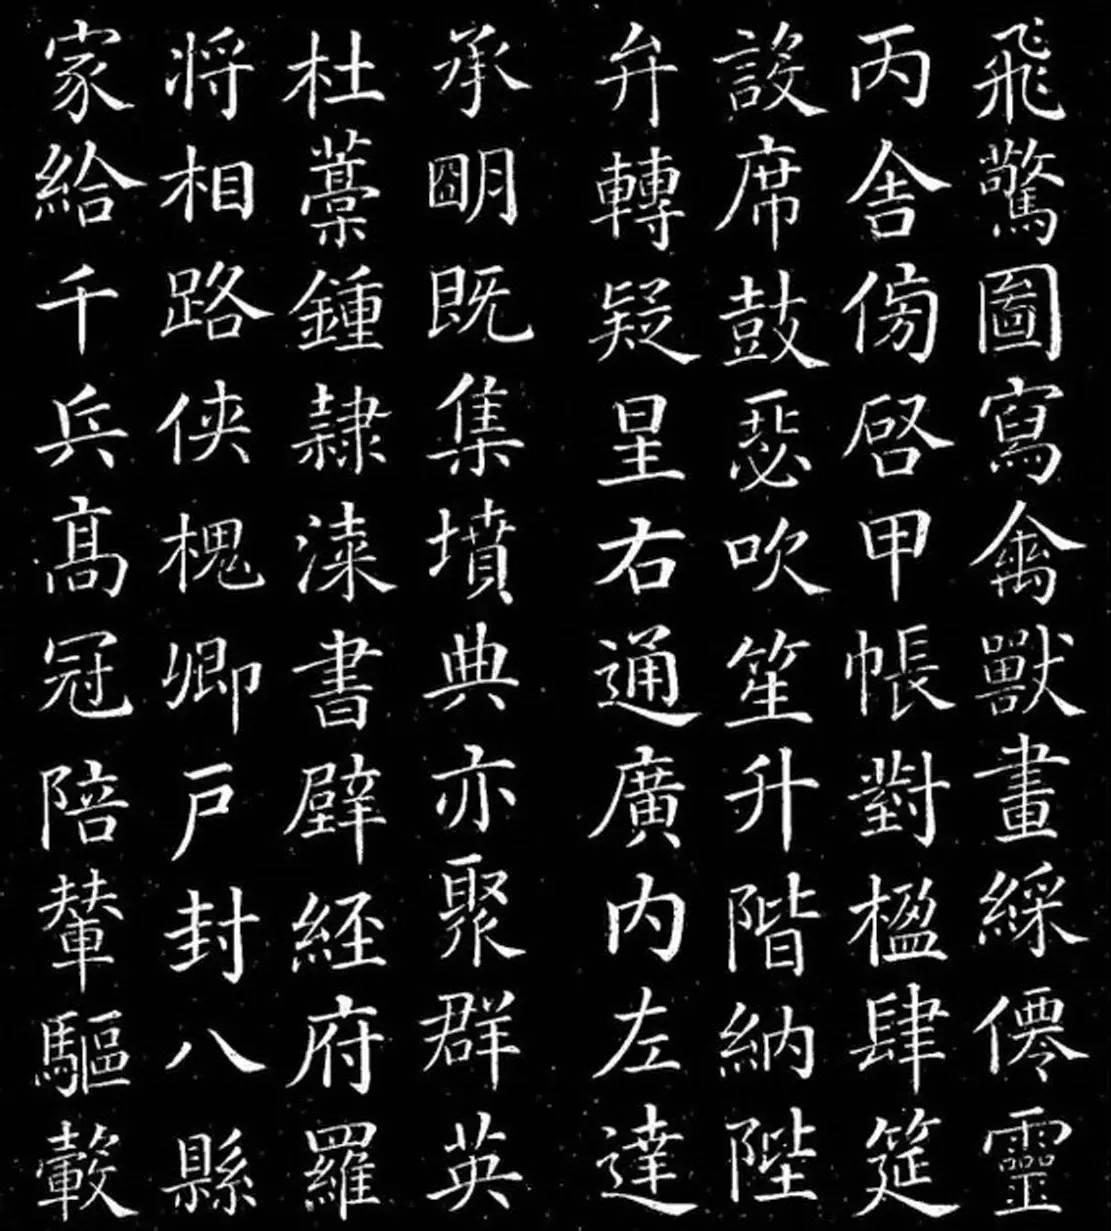 飛驚圖寫禽獸畫綵僊靈
丙舍傍啓甲帳對楹肆筵
設席鼓瑟吹笙升階納陛
弁轉疑星右通廣内左達
承明既集墳典亦聚群英
杜藁鍾隷漆書壁經府羅
将相路俠槐卿戶封八縣
家給千兵高冠陪輦驅轂